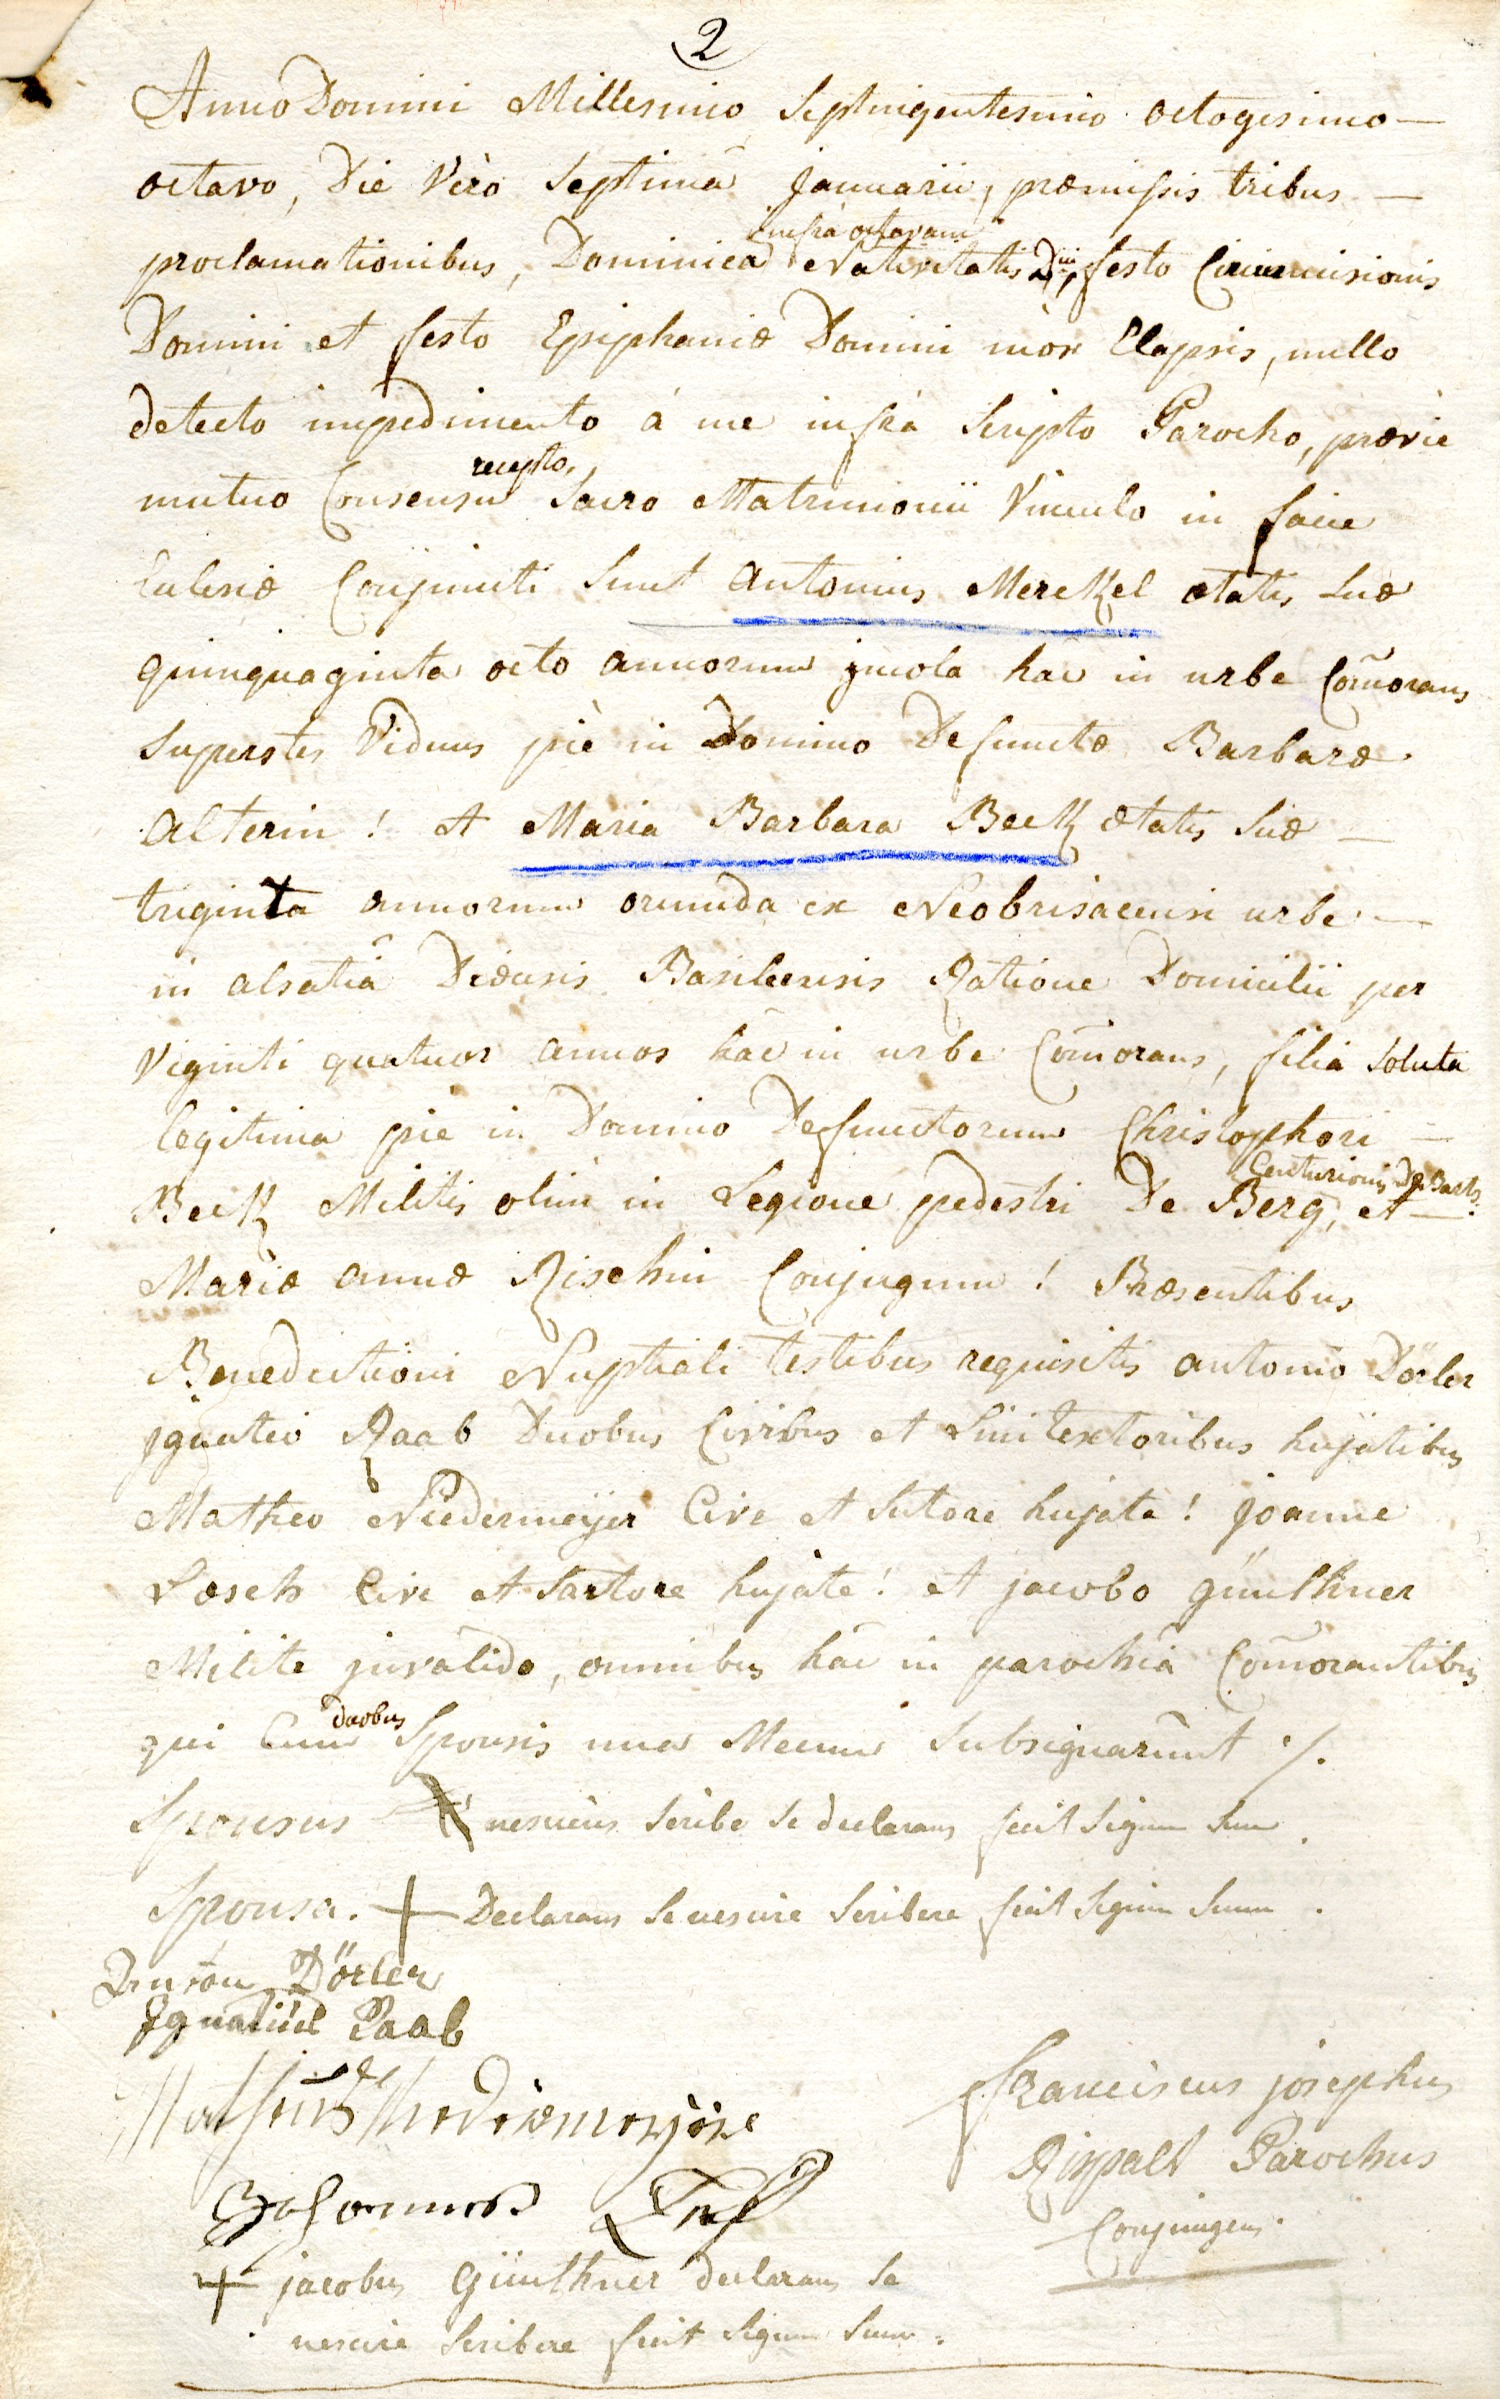 2
Anno Domini Millesimo Septingentesimo octogesimo —
octavo, Die Verò Septimâ Januarii, præmissis tribus —
infra octavam
proclamationibus, Dominicâ Nativitatis Dni, festo Circumcisionis
Domini et festo Epiphaniæ Domini mòx Elapsis, nullo
detecto impedimento à me infrà Scripto Parocho, prævie
recepto,
mutuo Consensu Sacro Matrimonii Vinculo in facie
Eclesiæ Conjuncti Sunt Antonius Merckel ætatis Suæ
quinquaginta octo annorum jncola hâc in urbe Com̃orans
Superstes Viduus piè in Domino Defunctæ Barbaræ
Alterin! et Maria Barbara Beck ætatis Suæ —
triginta annorum oriunda ex Neobrisacensi urbe —
in alsatiâ Diœcesis Basileensis Ratione Domicilii per
Viginti quatuor annos hâc in urbe Com̃orans, filia Soluta
legitima piè in Domino Defunctorum Christophori —
Centurionis De Barts
Beck Militis olim in Legione pedestri De Berg, et —
Mariæ annæ Rischin Conjugum! Præsentibus
Benedictioni Nuptiali testibus requisitis antonio Dörler
jgnatio Raab Duobus Civibus et Linitextoribus hujatibus
Matheo Niedermeÿer Cive et Sutore hujate! Joanne
Lœsch Cive et Sartore hujate! et jacobo günthner
Milite jnvalido, omnibus hâc in parochiâ Com̃orantibus
duobus
qui Cum Sponsis una Mecum Subsignarûnt ./.
Sponsus nesciens Scribe Se declarans fecit Signum Suum.
Sponsa. + Declarans Se nescire Scribere fecit Signum Suum.
Anton Dörler
Ignatius Raab
Matheus Niedermeyer
Johannes Lesch
Franciscus josephus
Rispalt Parochus
Conjungens.
+ jacobus Günthner declarans Se
nescire Scribere fecit Signum Suum.